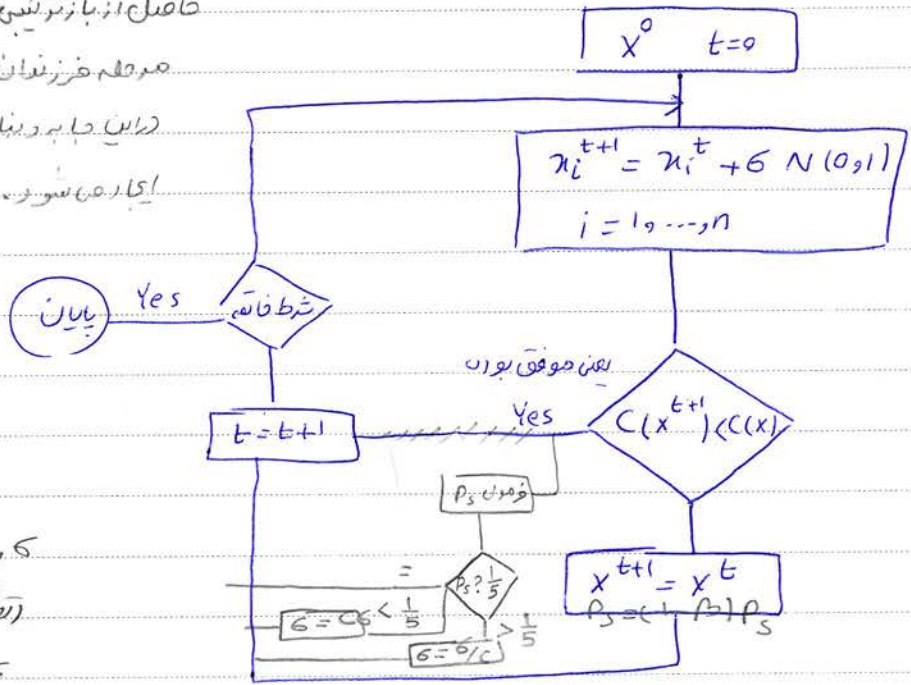 حاصل از بازترکیبی
مرحله فرزندان
(در این جا به
ایجاد می شود.
x⁰ t=0
xᵢᵗ⁺¹ = xᵢᵗ + σ N(0,1)
i = 1, ..., n
شرط خاتمه
Yes
پایان
یعنی موفق بودن
C(xᵗ⁺¹) < C(x)
Yes
t = t+1
فرمول Pₛ
Pₛ ? 1/5
=
< 1/5
σ = cσ
> 1/5
σ = σ/c
xᵗ⁺¹ = xᵗ
Pₛ = (1-β) Pₛ
σ